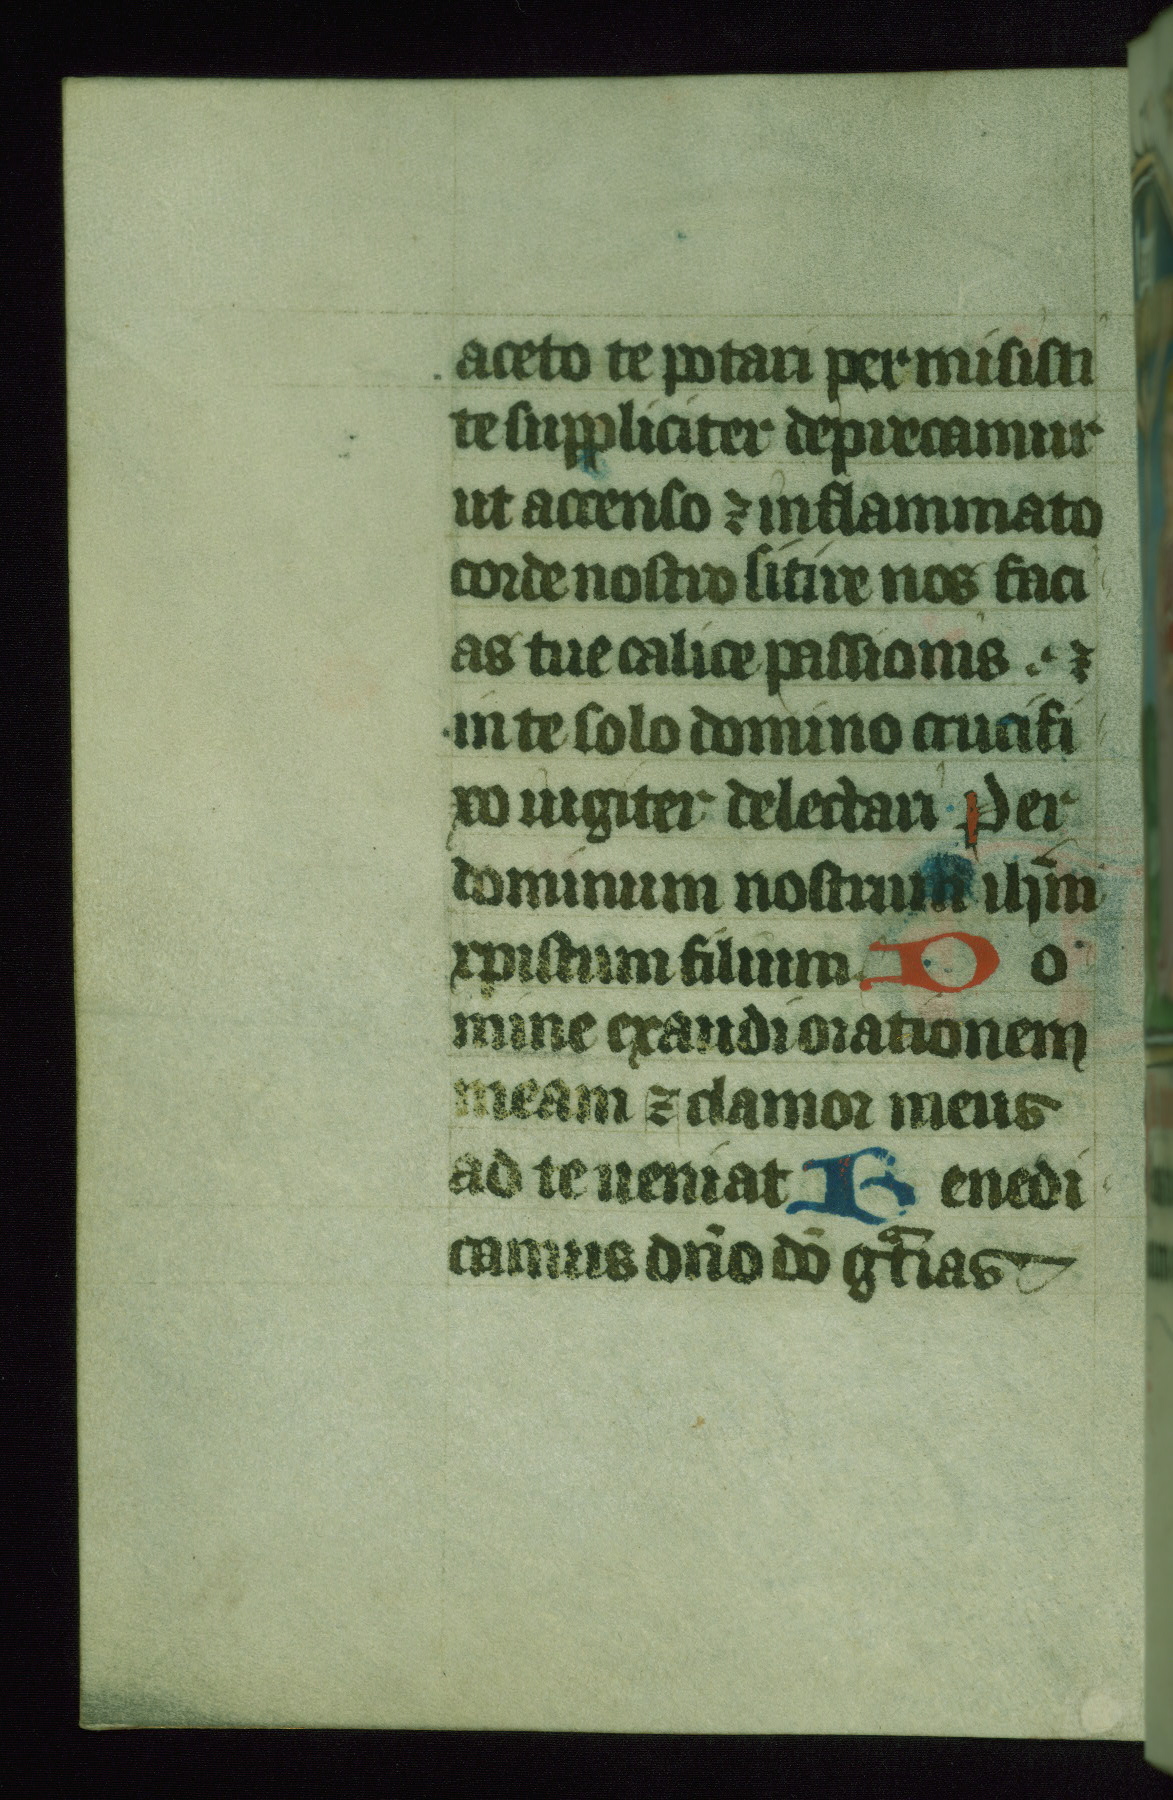 aceto te potari permisisti
te suppliciter deprecamur
ut accenso ⁊ inflammato
corde nostro sitire nos faci
as tue calice passionis . ⁊
in te solo domino crucifi
xo iugiter delectari Per
dominum nostrum ih̅m
xpistum filium Do
mine exaudi orationem
meam ⁊ clamor meus
ad te ueniat Benedi
camus dn̅o do̅ gr̅ias